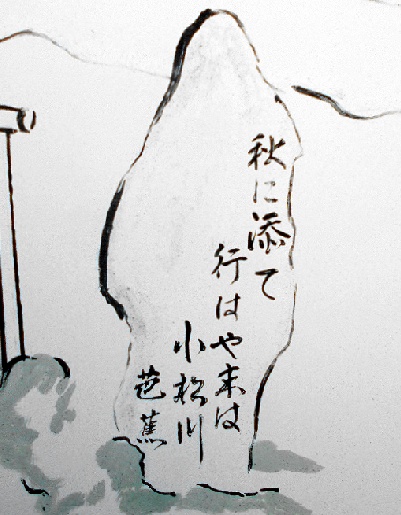 秋に添て
行はや末は
小松川
芭蕉